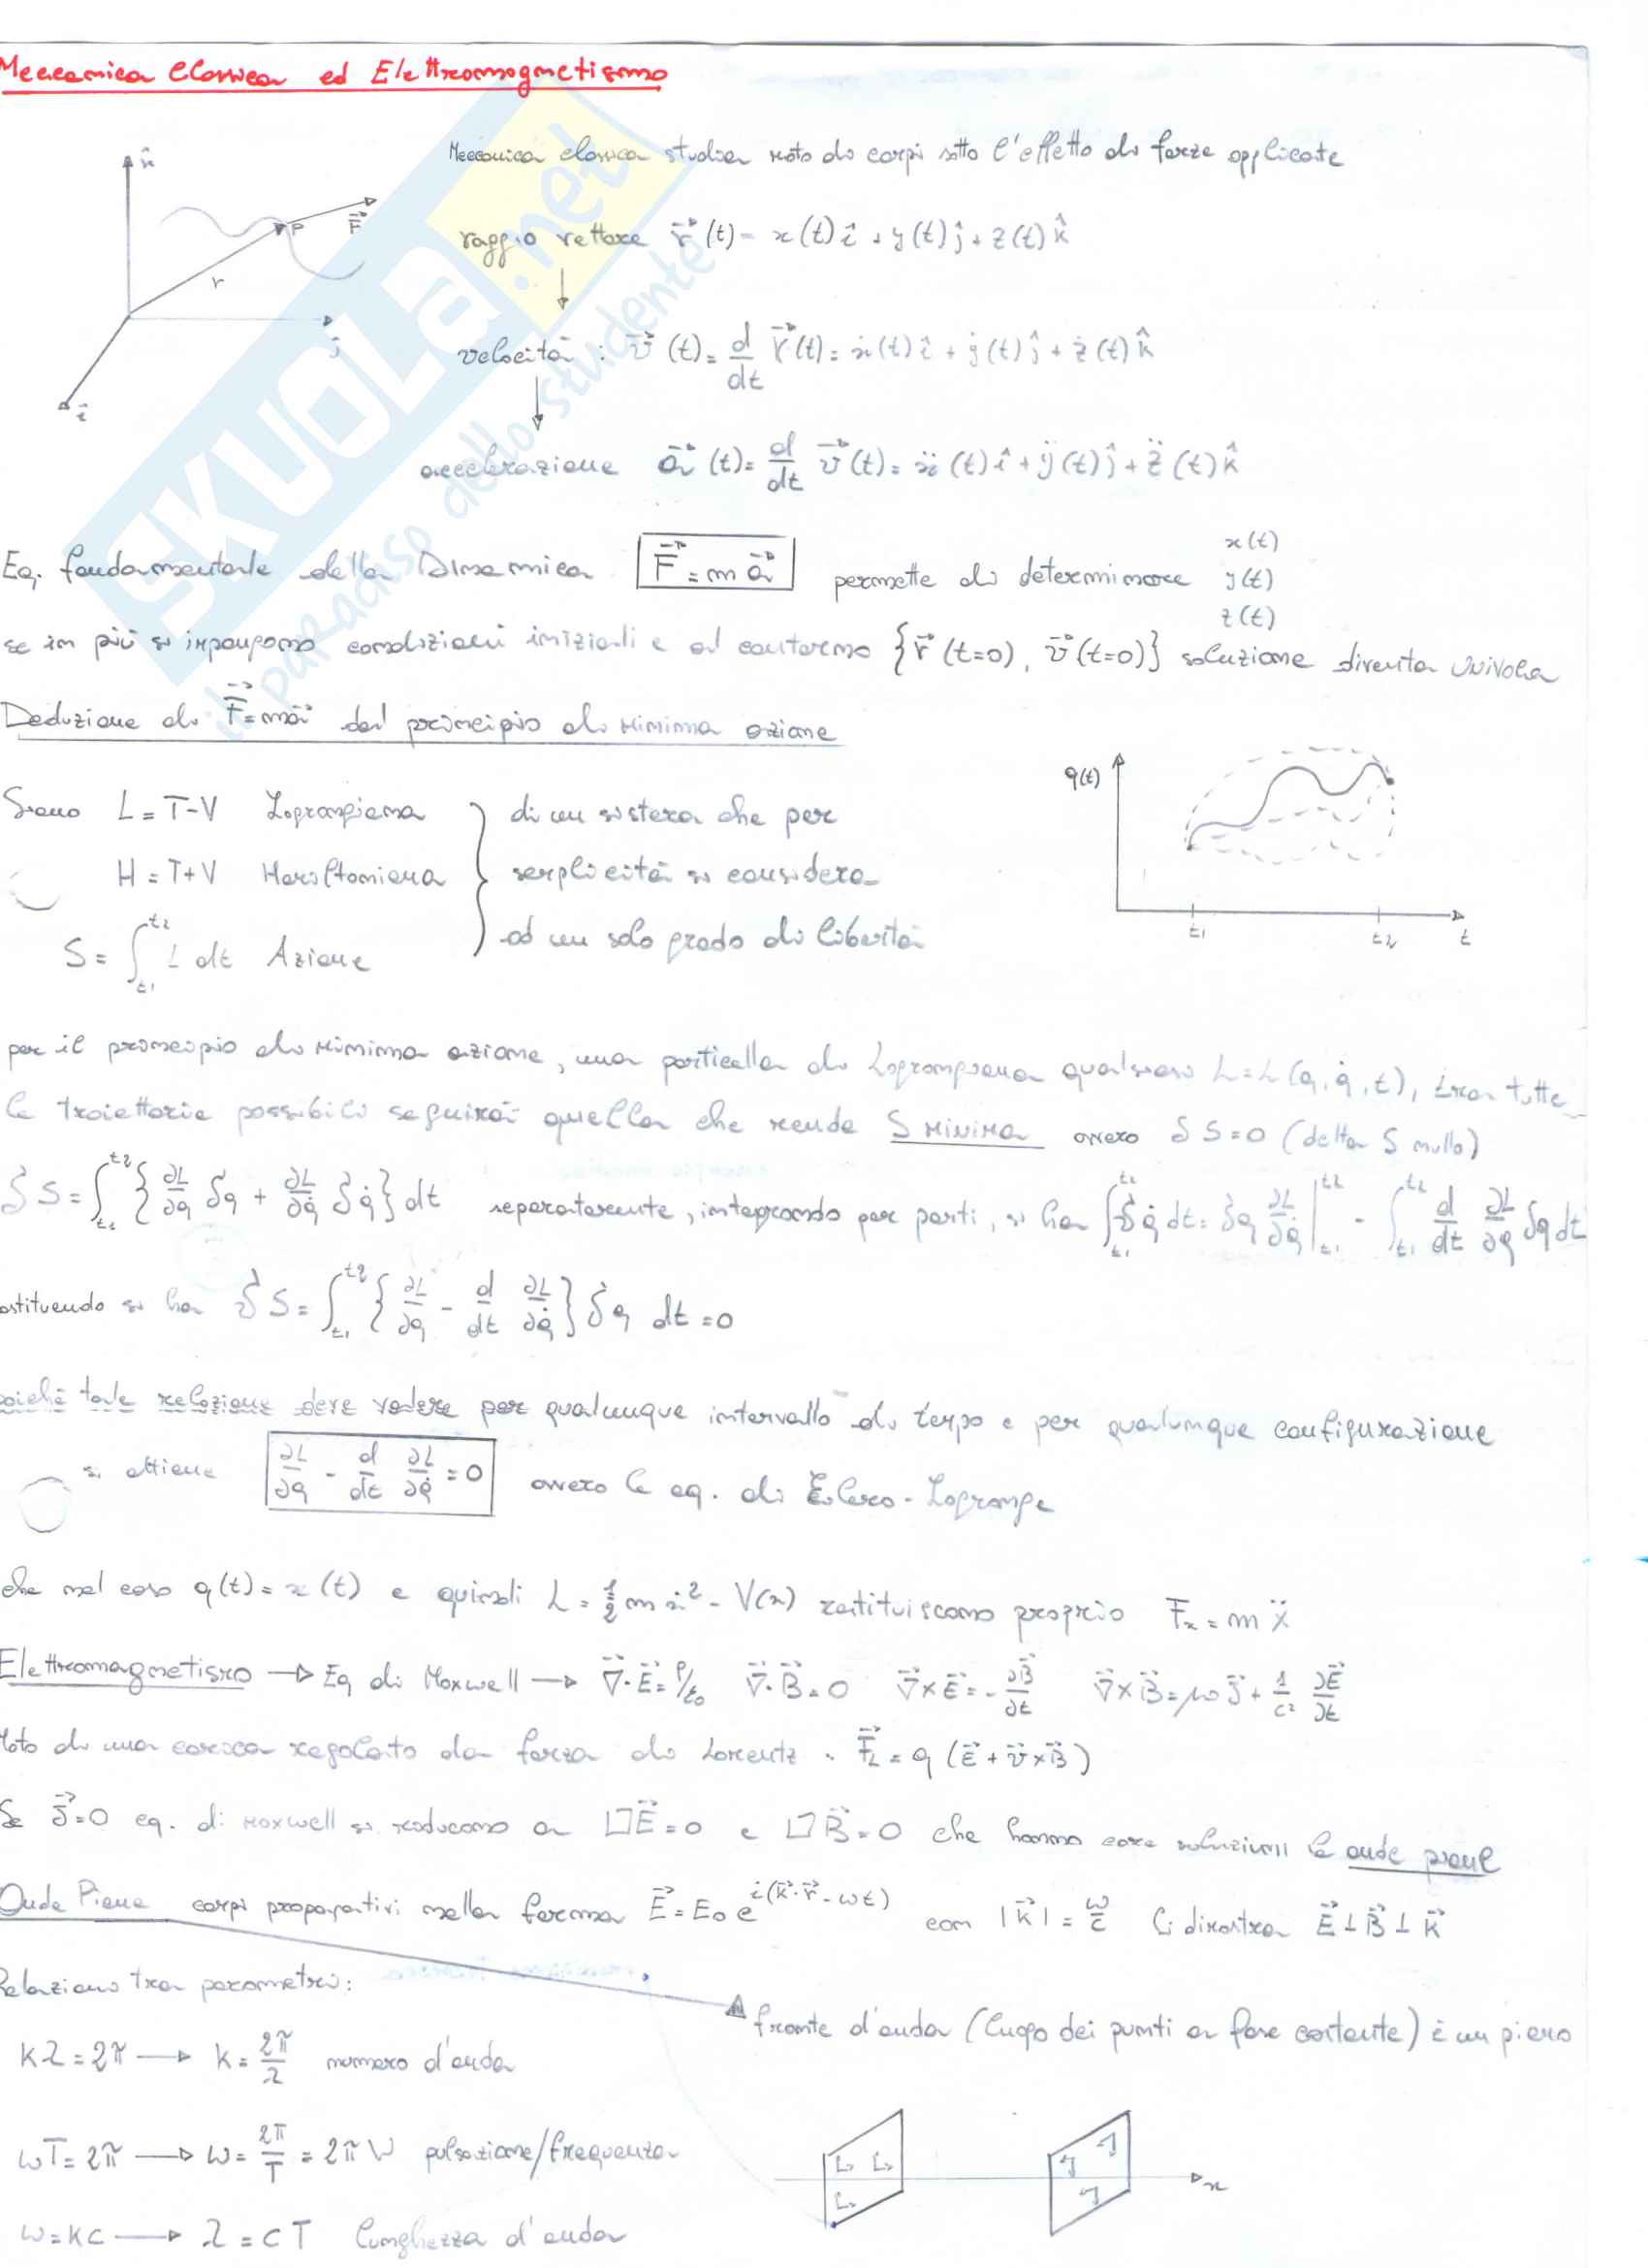 Meccanica Classica ed Elettromagnetismo
k̂
P
F⃗
r
ĵ
î
Meccanica classica studia moto di corpi sotto l'effetto di forze applicate
raggio vettore r⃗(t) = x(t) î + y(t) ĵ + z(t) k̂
velocità : v⃗(t) = d/dt r⃗(t) = ẋ(t) î + ẏ(t) ĵ + ż(t) k̂
accelerazione a⃗(t) = d/dt v⃗(t) = ẍ(t) î + ÿ(t) ĵ + z̈(t) k̂
SKUOLA.net
il paradiso dello studente
Eq. fondamentale della Dinamica F⃗ = m a⃗ permette di determinare x(t) y(t) z(t)
se in più si impongono condizioni iniziali e al contorno {r⃗(t=0), v⃗(t=0)} soluzione diventa univoca
Deduzione di F⃗=ma⃗ dal principio di minima azione
Siano L = T-V Lagrangiana
H = T+V Hamiltoniana
S = ∫_{t1}^{t2} L dt Azione
di un sistema che per
semplicità si considera
ad un solo grado di libertà
q(t)
t1 t2 t
per il principio di minima azione, una particella di Lagrangiana qualsiasi L=L(q,q̇,t), tra tutte
le traiettorie possibili seguirà quella che rende S MINIMA ovvero δS=0 (delta S nullo)
δS = ∫_{t1}^{t2} {∂L/∂q δq + ∂L/∂q̇ δq̇} dt separatamente, integrando per parti, si ha ∫_{t1}^{t2} δq̇ dt = δq ∂L/∂q̇ |_{t1}^{t2} - ∫_{t1}^{t2} d/dt ∂L/∂q̇ δq dt
ostituendo si ha δS = ∫_{t1}^{t2} {∂L/∂q - d/dt ∂L/∂q̇} δq dt = 0
oiché tale relazione deve valere per qualunque intervallo di tempo e per qualunque configurazione
si ottiene ∂L/∂q - d/dt ∂L/∂q̇ = 0 ovvero le eq. di Eulero-Lagrange
che nel caso q(t) = x(t) e quindi L = ½ m ẋ² - V(x) restituiscono proprio Fx = m ẍ
Elettromagnetismo → Eq di Maxwell → ∇⃗·E⃗ = ρ/ε0 ∇⃗·B⃗ = 0 ∇⃗×E⃗ = -∂B⃗/∂t ∇⃗×B⃗ = μ0 J⃗ + 1/c² ∂E⃗/∂t
Moto di una carica regolato da forza di Lorentz : F⃗L = q (E⃗ + v⃗×B⃗)
Se J⃗=0 eq. di Maxwell si riducono a □E⃗=0 e □B⃗=0 che hanno come soluzioni le onde piane
Onda Piana campi propagativi nella forma E⃗ = E0 e^{i(k⃗·r⃗-ωt)} con |k⃗| = ω/c Si dimostra E⃗⊥B⃗⊥k⃗
Relazioni tra parametri:
fronte d'onda (luogo dei punti a fase costante) è un piano
kλ = 2π → k = 2π/λ numero d'onda
ωT = 2π → ω = 2π/T = 2πν pulsazione/frequenza
ω = kc → λ = cT lunghezza d'onda
x